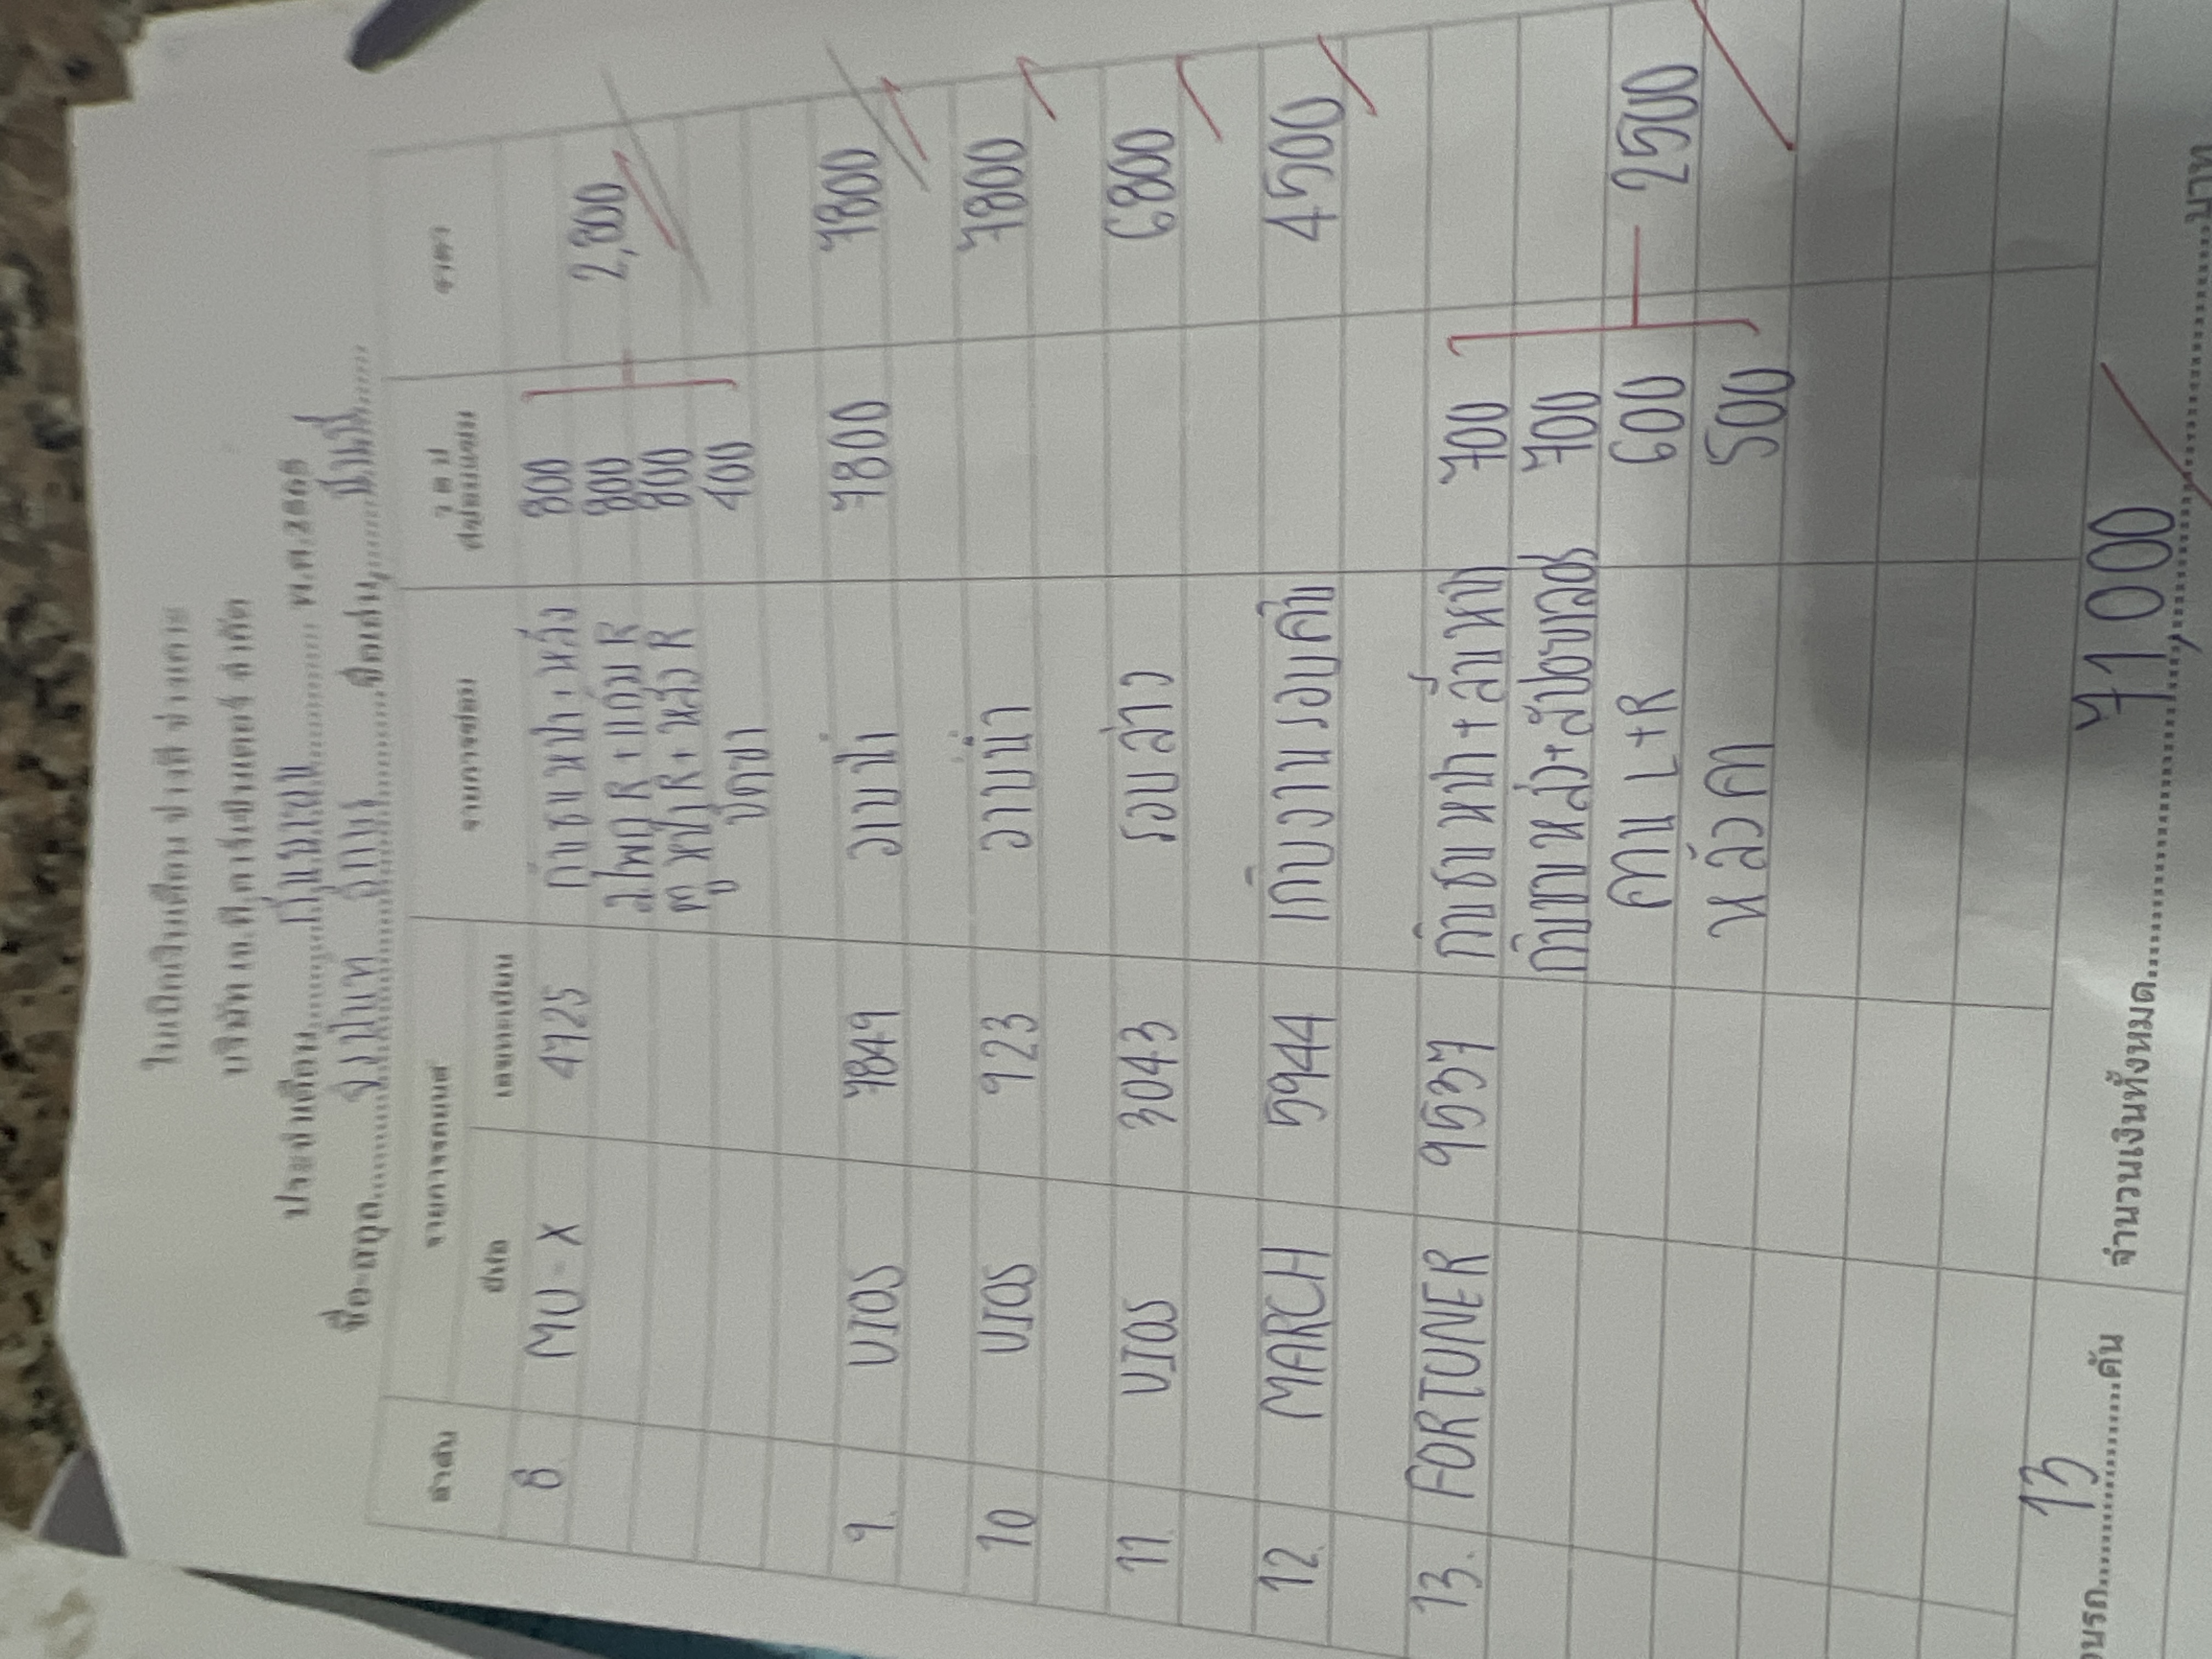 ใบเบิกเงินเดือน ช่างสี ช่างเคาะ
บริษัท เค.ที.คาร์เซ็นเตอร์ จำกัด
ประจำเดือน พ.ศ.2565
ชื่อ-สกุล ชื่อเล่น
ลำดับ รายการรถยนต์ รายการซ่อม ว ด ป ราคา
ยี่ห้อ เลขทะเบียน
8 MU-X 4725 กันชนหน้า+หลัง 800
800 2,800
800
400
9. VIOS 7849 อาบน้ำ 7800 7800
10 VIOS 923 อาบน้ำ 7800
11. VIOS 3043 รอบล่าง 6800
12. MARCH 5944 เก็บงานรอบคัน 4500
13. FORTUNER 9537 กันชนหน้า+ลิ้นหน้า 700
กันชนหลัง+สปอยเลอร์ 700
คาน L+R 600 2500
หลังคา 500
13 คัน จำนวนเงินทั้งหมด 71,000 บาท